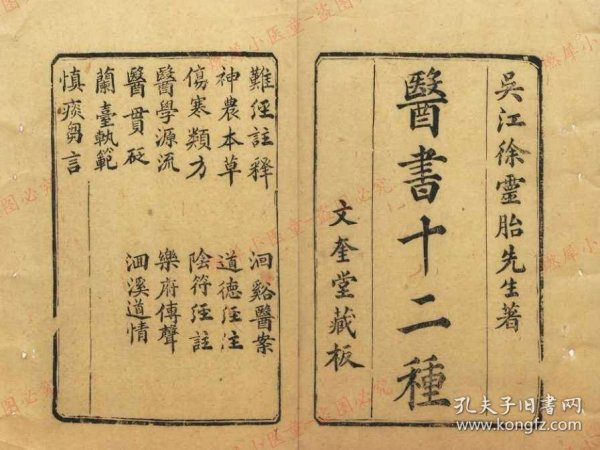 吳江徐靈胎先生著
醫書十二種
文奎堂藏板
難經註釋
神農本草
傷寒類方
醫學源流
醫貫砭
蘭臺軌範
慎疾芻言
洄谿醫案
道德經注
陰符經註
樂府傳聲
洄溪道情
孔夫子旧书网
www.kongfz.com